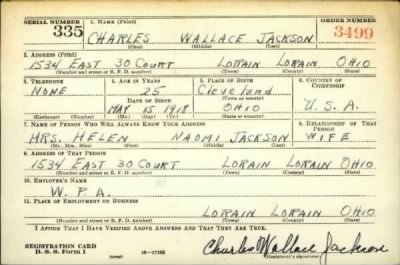 SERIAL NUMBER 1. NAME (Print) ORDER NUMBER
335 CHARLES WALLACE JACKSON 3499
(First) (Middle) (Last)
2. ADDRESS (Print)
1534 EAST 30 COURT LORAIN LORAIN OHIO
(Number and street or R. F. D. number) (Town) (County) (State)
3. TELEPHONE 4. AGE IN YEARS 5. PLACE OF BIRTH 6. COUNTRY OF CITIZENSHIP
NONE 25 Cleveland
DATE OF BIRTH (Town or county)
MAR 15 1918 OHIO U.S.A.
(Exchange) (Number) (Mo.) (Day) (Yr.) (State or country)
7. NAME OF PERSON WHO WILL ALWAYS KNOW YOUR ADDRESS 8. RELATIONSHIP OF THAT PERSON
MRS. HELEN NAOMI JACKSON WIFE
(Mr., Mrs., Miss) (First) (Middle) (Last)
9. ADDRESS OF THAT PERSON
1534 EAST 30 COURT LORAIN LORAIN OHIO
(Number and street or R. F. D. number) (Town) (County) (State)
10. EMPLOYER'S NAME
W.P.A.
11. PLACE OF EMPLOYMENT OR BUSINESS
LORAIN LORAIN OHIO
(Number and street or R. F. D. number) (Town) (County) (State)
I AFFIRM THAT I HAVE VERIFIED ABOVE ANSWERS AND THAT THEY ARE TRUE.
REGISTRATION CARD
D. S. S. Form 1 (over) Charles Wallace Jackson
(Registrant's signature)